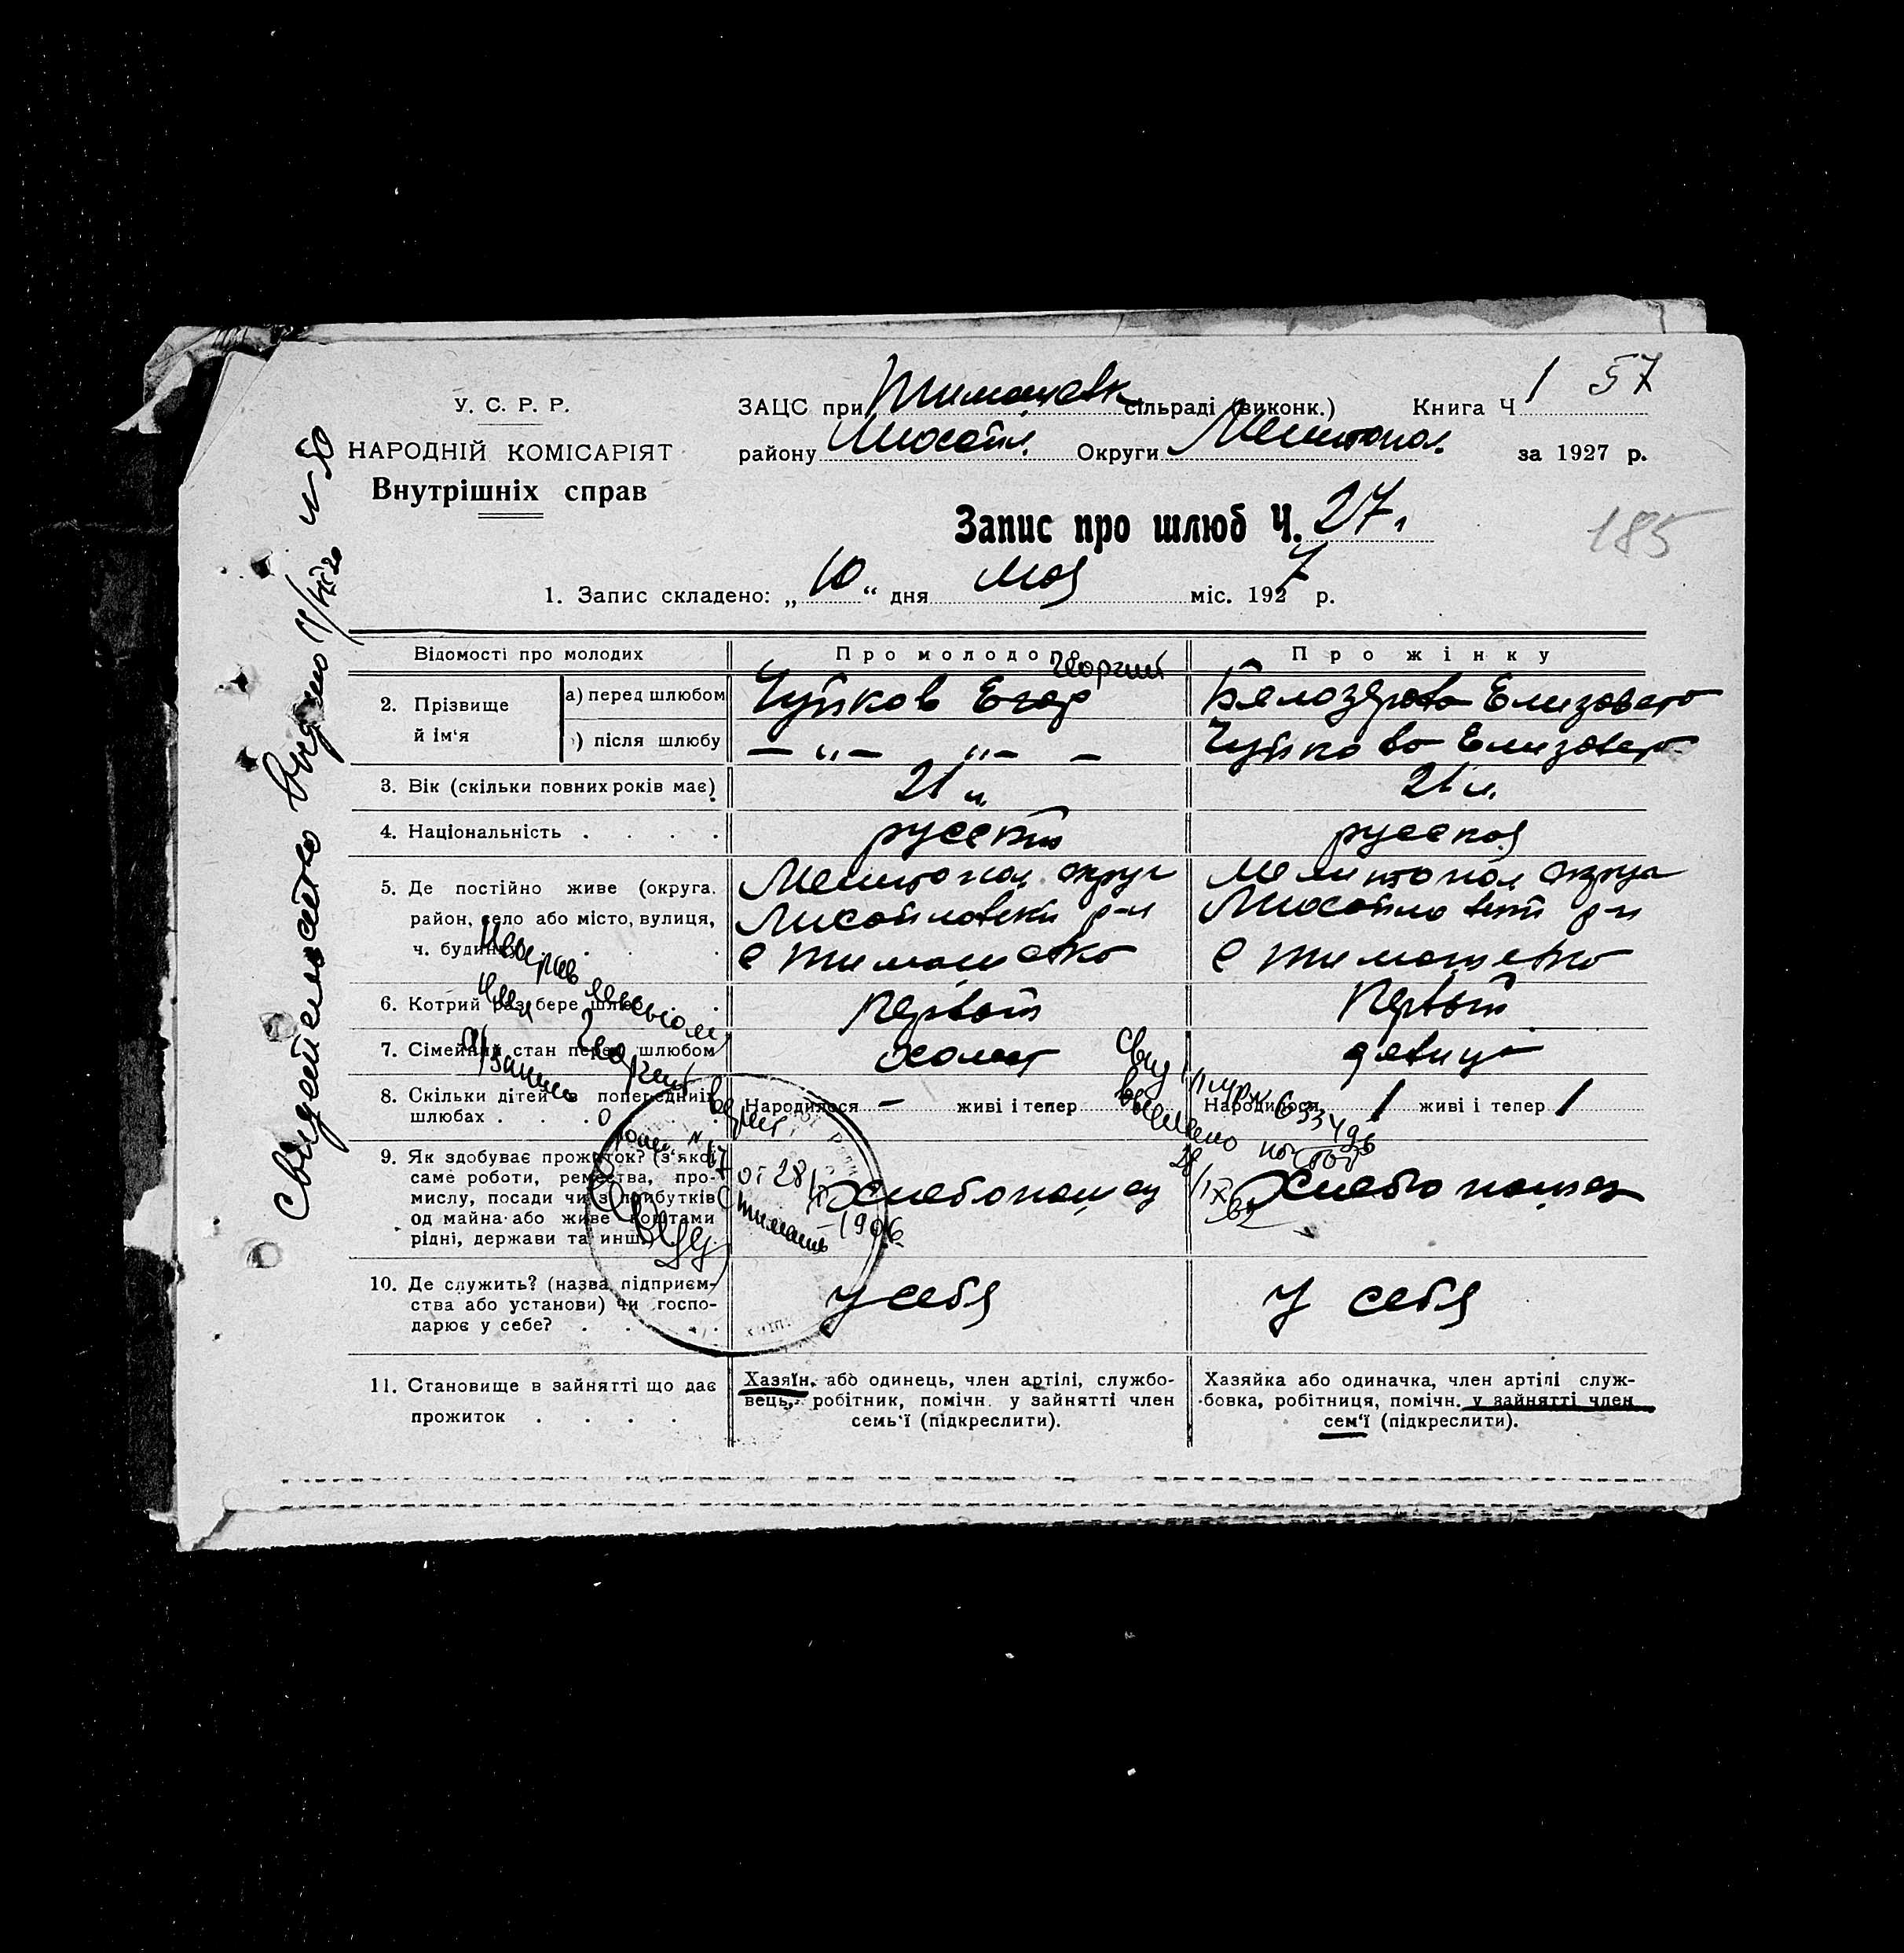 1 57
У. С. Р. Р.
ЗАЦС при Тимашевк сільраді (виконк.) Книга Ч
НАРОДНІЙ КОМІСАРІЯТ
району Михайл. Округи Мелитопол. за 1927 р.
Внутрішніх справ
Запис про шлюб Ч. 27.
185
1. Запис складено: „ 10 “ дня мая міс. 1927 р.
Відомості про молодих Про молодого Про жінку
Георгий
2. Прізвище й ім‘я а) перед шлюбом Чуйков Егор Белозерова Елизавета
) після шлюбу — „ — „ — — Чуйкова Елизавета
3. Вік (скільки повних років має) 21 л. 21 л.
4. Національність . . . . русский русская
5. Де постійно живе (округа. Мелитопол. округ Мелитопол округа
район, село або місто, вулиця, Михайловский р-н Михайловский р-н
ч. будинку) с Тимашевка с Тимашевка
6. Котрий раз бере шлюб Первый Первый
7. Сімейний стан перед шлюбом холост девица
8. Скільки дітей в попередніх Народилося — живі і тепер Народилося 1 живі і тепер 1
шлюбах . . . .
9. Як здобуває прожиток? (з якої
саме роботи, ремества, про-
мислу, посади чи з прибутків Хлебопашец Хлебопашец
од майна або живе коштами
рідні, держави та инш.)
10. Де служить? (назва підприєм-
ства або установи) чи госпо- у себя у себя
дарює у себе? . . . .
11. Становище в зайнятті що дає Хазяїн, або одинець, член артілі, службо- Хазяйка або одиначка, член артілі служ-
прожиток . . . . вець, робітник, помічн. у зайнятті член бовка, робітниця, помічн. у зайнятті член
семь‘ї (підкреслити). сем‘ї (підкреслити).
Свидетельство выдано
№ 50
Исправленному
имя Георгий
верить
№ 17 от 28/
1906
633496
выслано по
28/IX